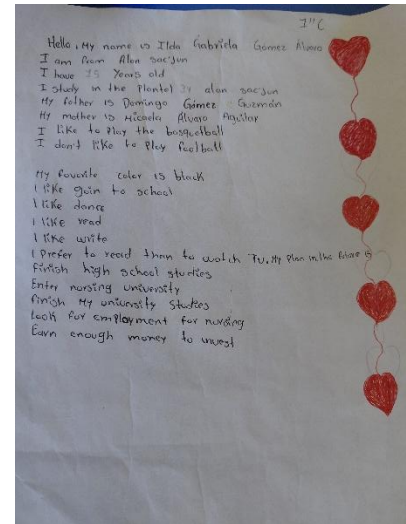 1"C
Hello, My name is Ilda Gabriela Gómez Álvaro
I am from Alan sac'jun
I have 15 Years old
I study in the Plantel 34 alan sac'jun
My father is Domingo Gómez Guzmán
My mother is Micaela Álvaro Aguilar
I like to Play the basquetball
I don't like to Play football
My favorite color is black
I like goin to school
I like dance
I like read
I like write
I Prefer to read than to watch Tv. My Plan in the future is
finish high school studies
Enter nursing university
finish My university studies
Look for employment for nursing
Earn enough money to invest